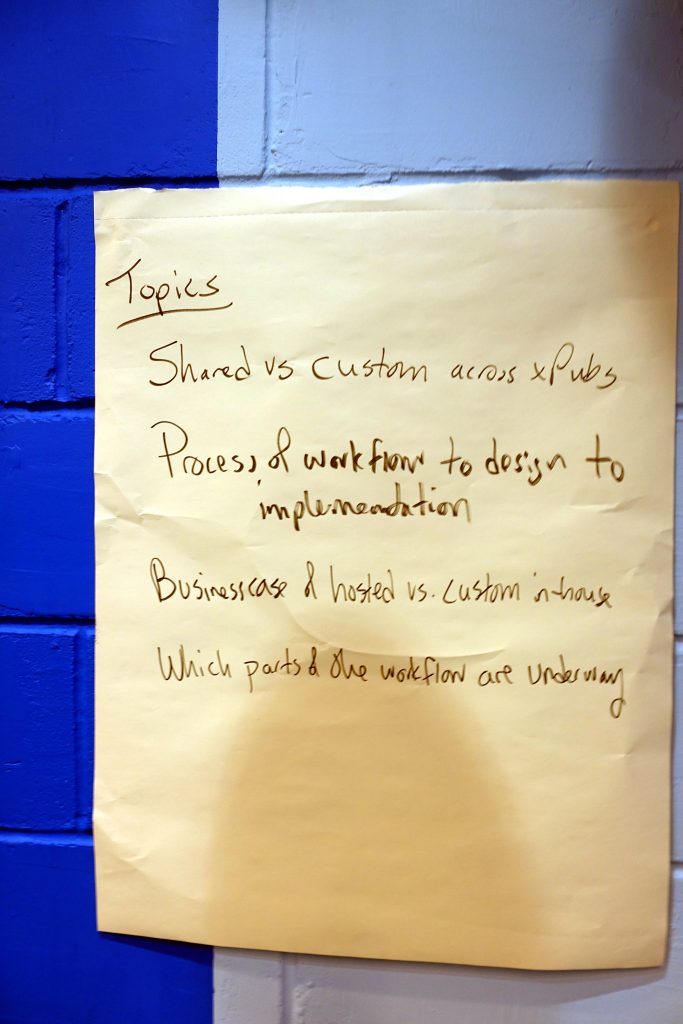 Topics
Shared vs custom across xPubs
Process of workflow to design to
implemendation
Businesscase of hosted vs. custom in-house
Which parts of the workflow are underway